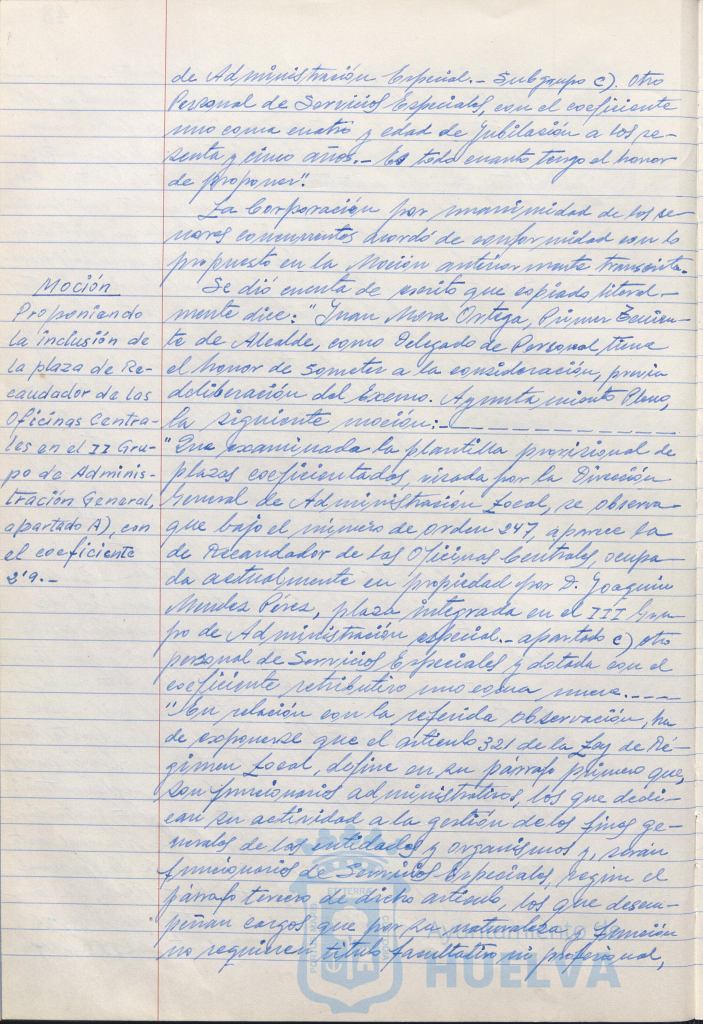 de Administración Especial.- Subgrupo C). Otro
Personal de Servicios Especiales, con el coeficiente
uno coma cuatro y edad de jubilación a los se-
senta y cinco años.- Es todo cuanto tengo el honor
de proponer".
La Corporación por unanimidad de los se-
ñores concurrentes acordó de conformidad con lo
propuesto en la Moción anteriormente transcrita.
Moción
Proponiendo
la inclusión de
la plaza de Re-
caudador de las
Oficinas Centra-
les en el II Gru-
po de Adminis-
tración General,
apartado A), con
el coeficiente
2'9.-
Se dió cuenta de escrito que copiado literal-
mente dice: "Juan Mora Ortega, Primer Tenien-
te de Alcalde, como Delegado de Personal, tiene
el honor de someter a la consideración, previa
deliberación del Excmo. Ayuntamiento Pleno,
la siguiente moción:-
"Que examinada la plantilla provisional de
plazas coeficientados, visada por la Dirección
General de Administración Local, se observa
que bajo el número de orden 247, aparece la
de Recaudador de las Oficinas Centrales, ocupa-
da actualmente en propiedad por D. Joaquin
Mendez Pérez, plaza integrada en el III Gru-
po de Administración especial.- apartado C) otro
personal de Servicios Especiales y dotada con el
coeficiente retributivo uno coma nueve.----
"En relación con la referida observación, ha
de exponerse que el artículo 321 de la Ley de Ré-
gimen Local, define en su párrafo primero que,
son funcionarios administrativos, los que dedi-
can su actividad a la gestión de los fines ge-
nerales de las entidades y organismos y, serán
funcionarios de Servicios Especiales, según el
párrafo tercero de dicho artículo, los que desem-
peñan cargos que por su naturaleza y función
no requieren título facultativo ni profesional,
Ayuntamiento
HUELVA